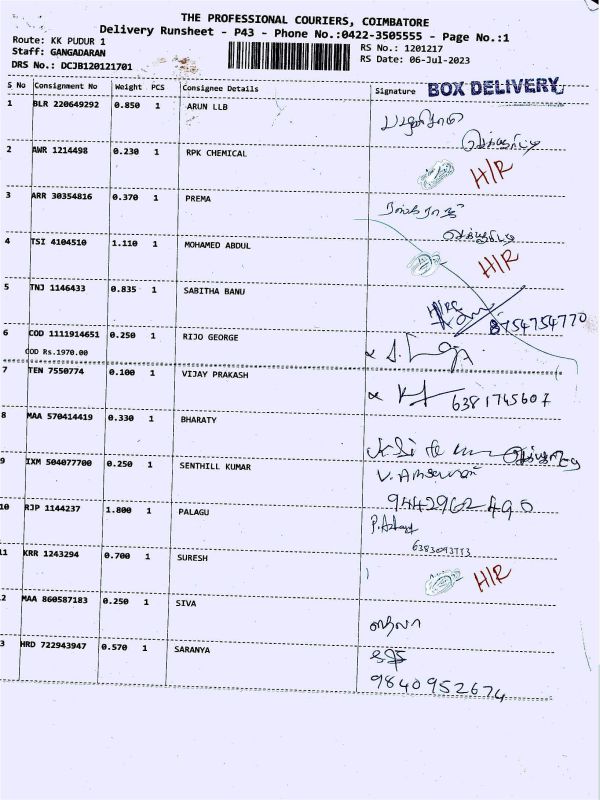 THE PROFESSIONAL COURIERS, COIMBATORE
Delivery Runsheet - P43 - Phone No.:0422-3505555 - Page No.:1
Route: KK PUDUR 1
RS No.: 1201217
Staff: GANGADARAN
RS Date: 06-Jul-2023
DRS No.: DCJB120121701
S No Consignment No Weight PCS Consignee Details Signature BOX DELIVERY
1 BLR 220649292 0.850 1 ARUN LLB
2 AWR 1214498 0.230 1 RPK CHEMICAL H/R
3 ARR 30354816 0.370 1 PREMA
4 TSI 4104510 1.110 1 MOHAMED ABDUL H/R
5 TNJ 1146433 0.835 1 SABITHA BANU 8754754770
6 COD 1111914651 0.250 1 RIJO GEORGE
COD Rs.1970.00
7 TEN 7550774 0.100 1 VIJAY PRAKASH 6381745607
8 MAA 570414419 0.330 1 BHARATY
9 IXM 504077700 0.250 1 SENTHILL KUMAR
9442962490
10 RJP 1144237 1.800 1 PALAGU
11 KRR 1243294 0.700 1 SURESH H/R
2 MAA 860587183 0.250 1 SIVA
3 HRD 722943947 0.570 1 SARANYA
9840952674